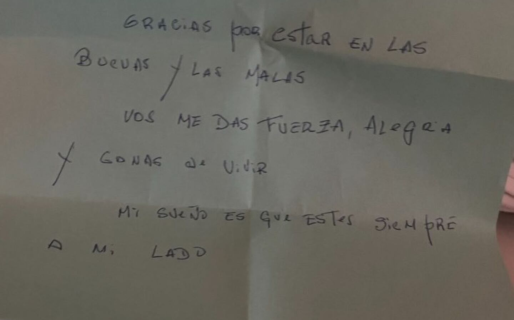 GRACIAS POR ESTAR EN LAS
BUENAS Y LAS MALAS
VOS ME DAS FUERZA, ALEGRIA
Y GANAS DE VIVIR
MI SUEÑO ES QUE ESTES SIEMPRE
A MI LADO